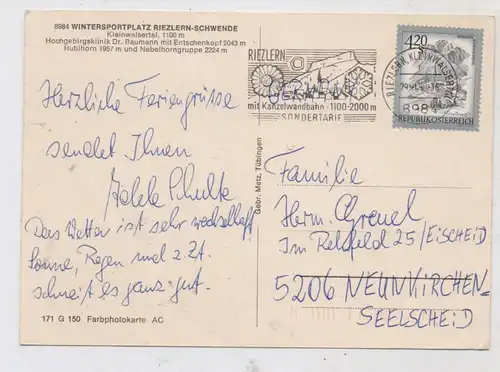 8984 WINTERSPORTPLATZ RIEZLERN-SCHWENDE
Kleinwalsertal, 1100 m
Hochgebirgsklinik Dr. Baumann mit Entschenkopf 2043 m
Rubihorn 1957 m und Nebelhorngruppe 2224 m
Herzliche Feriengrüsse
sendet Ihnen
Adele Schulte
Das Wetter ist sehr wechselhaft
Sonne, Regen und z.Zt.
schneit es ganz gut.
171 G 150 Farbphotokarte AC
Gebr. Metz, Tübingen
RIEZLERN
mit Kanzelwandbahn · 1100-2000 m
SONDERTARIF
420
REPUBLIK ÖSTERREICH
RIEZLERN, KLEINWALSERTAL
Familie
Herm. Greuel
Im Rehfeld 25/EISCHEID
5206 NEUNKIRCHEN-
SEELSCHEID